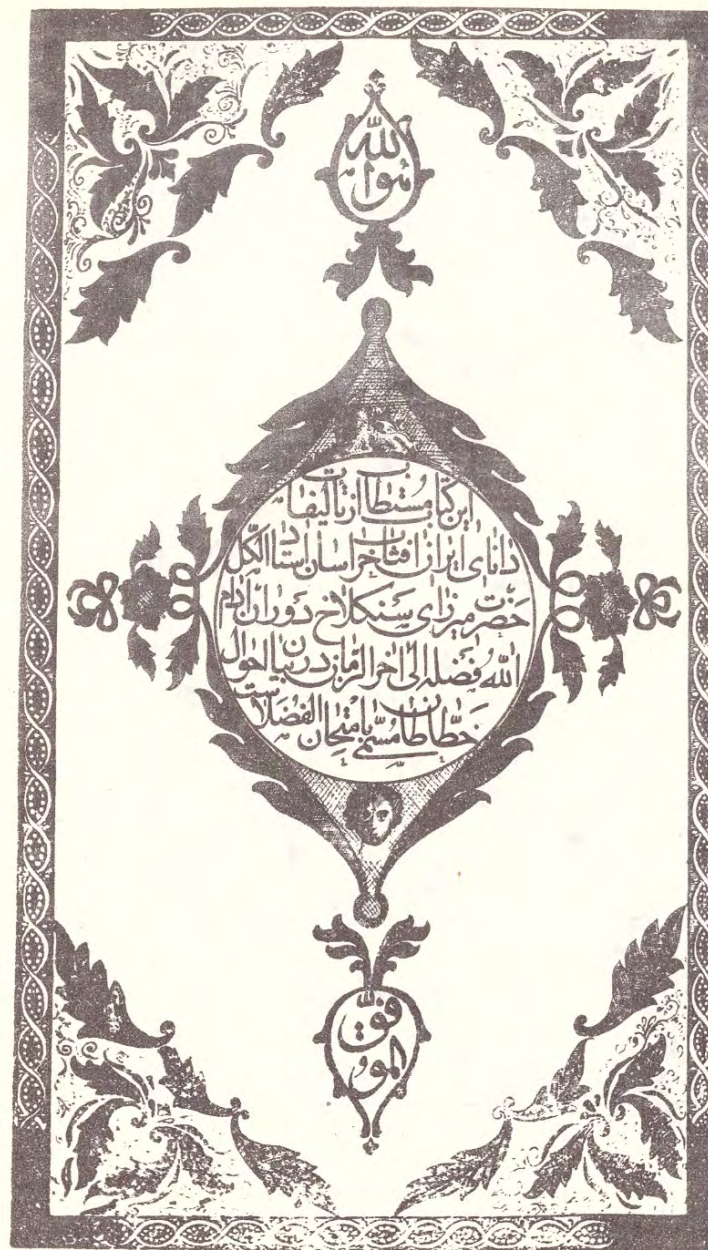 هو الله
این کتاب مستطاب از تألیفات
دانای ایران آفتاب خراسان استاد الکل
حضرت میرزای سنگلاخ دوران ادام
الله فضله الی آخر الزمان در بیان احوال
خطاطان مسمّی بامتحان الفضلاست
الموفّق